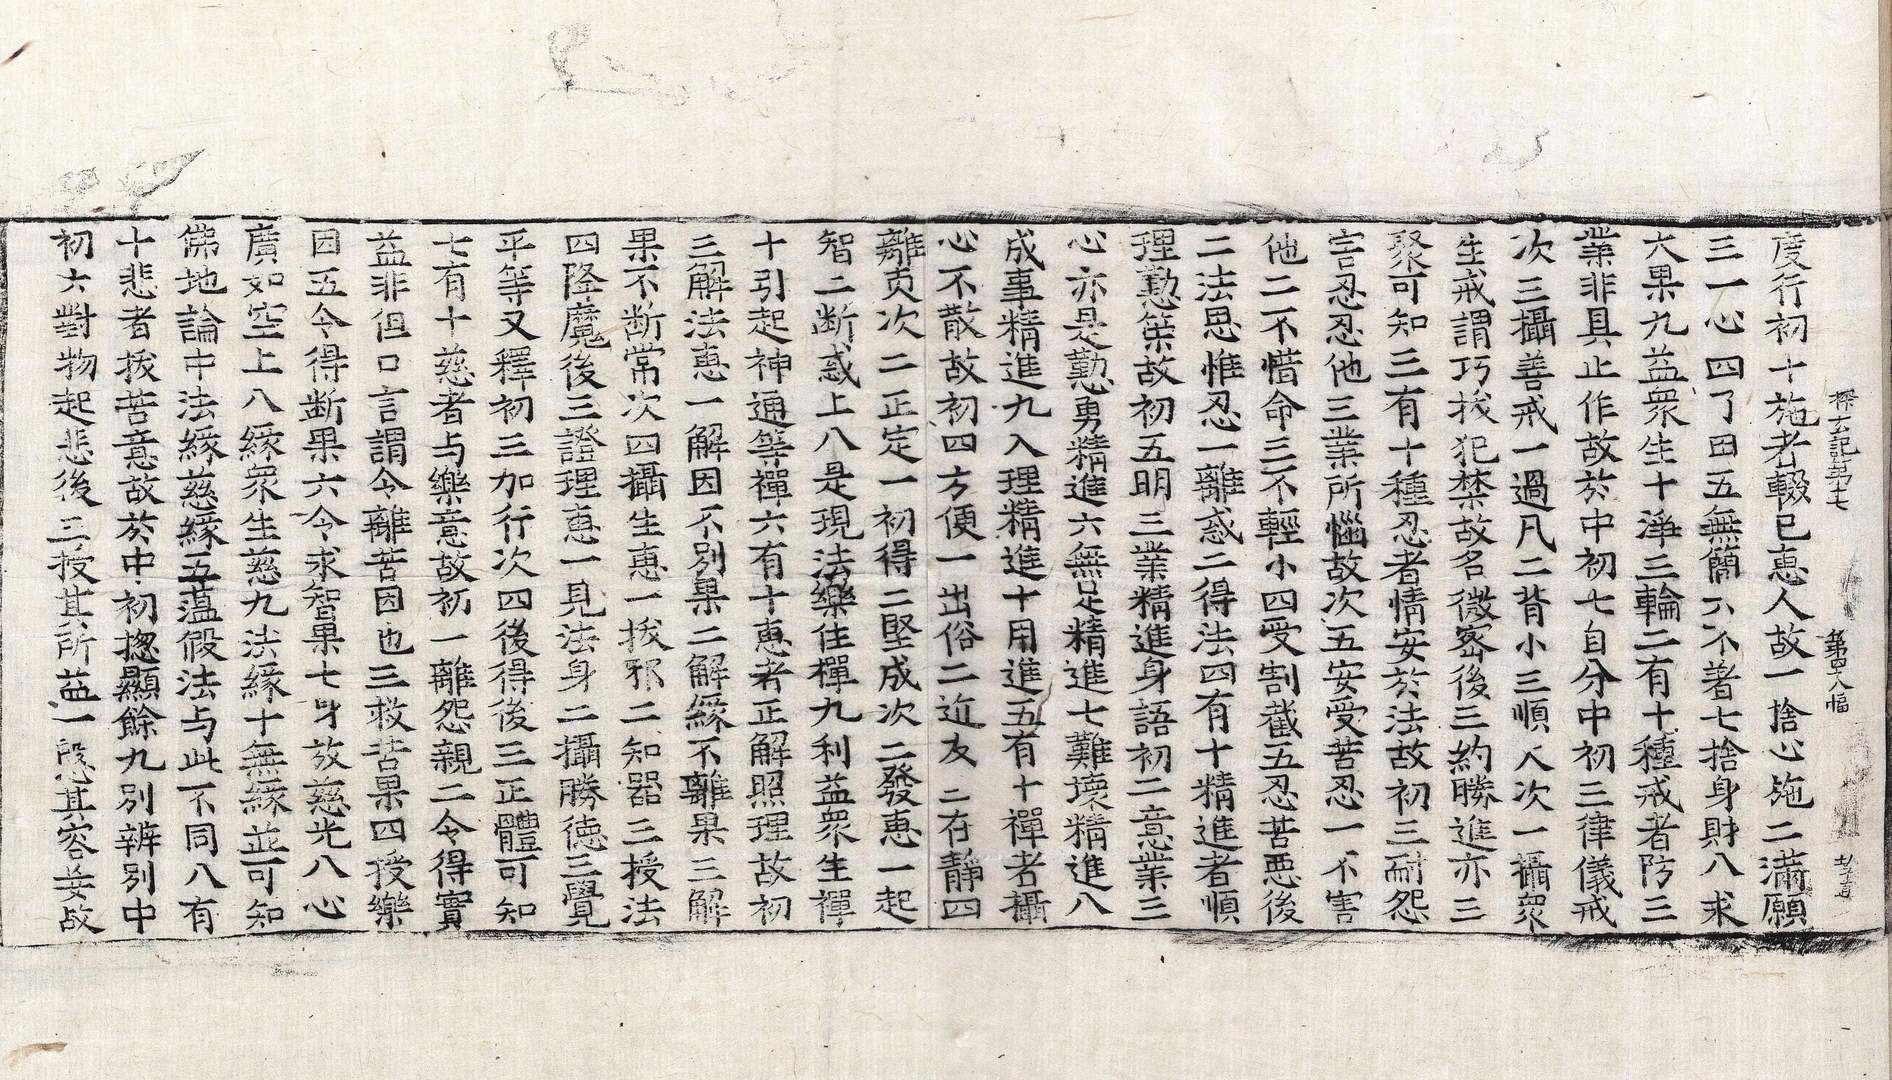 探玄記第十七 第四十八幅
度行初十施者輟已惠人故一捨心施二滿願
三一心四了因五無簡六不著七捨身財八求
大果九益衆生十淨三輪二有十種戒者防三
業非具止作故於中初七自分中初三律儀戒
次三攝善戒一過凡二背小三順人次一攝衆
生戒謂巧拔犯禁故名微密後三約勝進亦三
聚可知三有十種忍者情安於法故初三耐怨
害忍忍他三業所惱故次五安受苦忍一不害
他二不惜命三不輕小四受割截五忍苦惡後
二法思惟忍一離惑二得法四有十精進者順
理懃策故初五明三業精進身語初二意業三
心亦是懃勇精進六無足精進七難壞精進八
成事精進九入理精進十用進五有十禪者攝
心不散故初四方便一出俗二近友二在靜四
離㕛次二正定一初得二堅成次二發惠一起
智二断惑上八是現法樂住禪九利益衆生禪
十引起神通等禪六有十惠者正解照理故初
三解法惠一解因不別果二解緣不離果三解
果不断常次四攝生惠一拔邪二知器三授法
四降魔後三證理惠一見法身二攝勝德三覺
平等又釋初三加行次四後得後三正體可知
七有十慈者与樂意故初一離怨親二令得實
益非但口言謂令離苦因也三救苦果四授樂
因五令得断果六令求智果七身放慈光八心
廣如空上八緣衆生慈九法緣十無緣並可知
佛地論中法緣慈緣五藴假法与此不同八有
十悲者拔苦意故於中初揔顯餘九別辨別中
初六對物起悲後三授其所益一段其容妄故